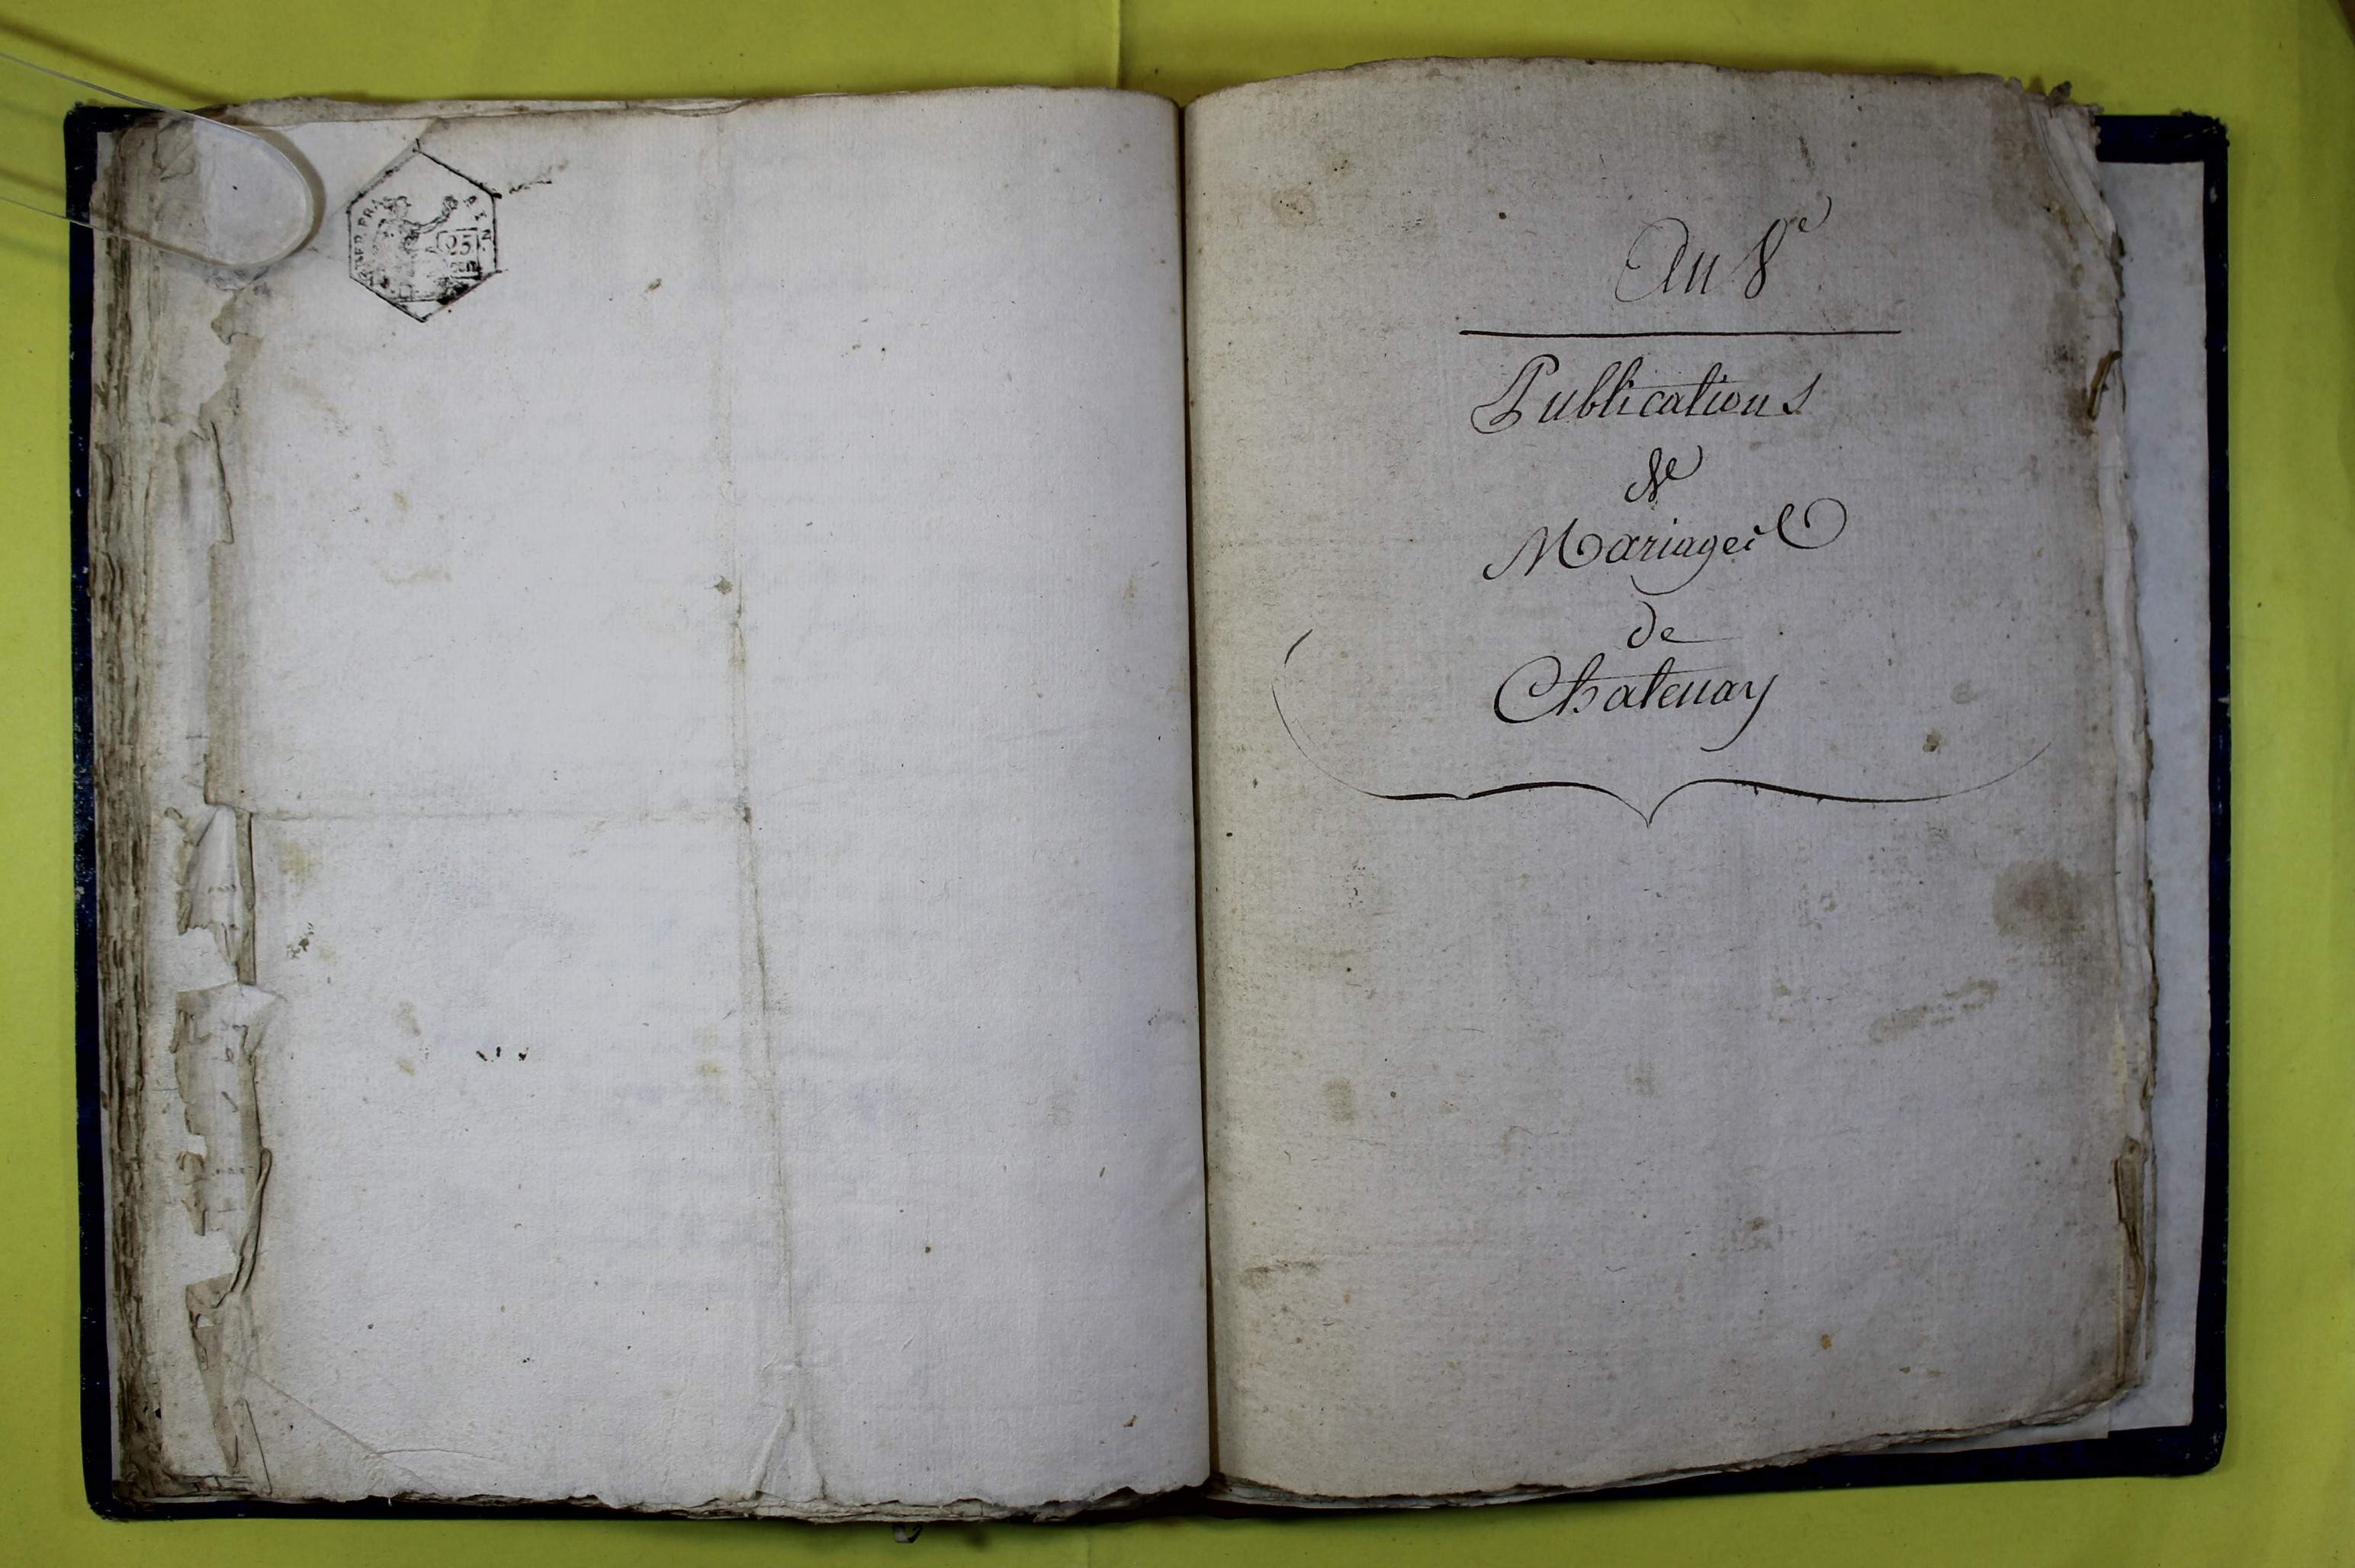 25
An 8e
Publications
de
Mariages
de
Chatenay